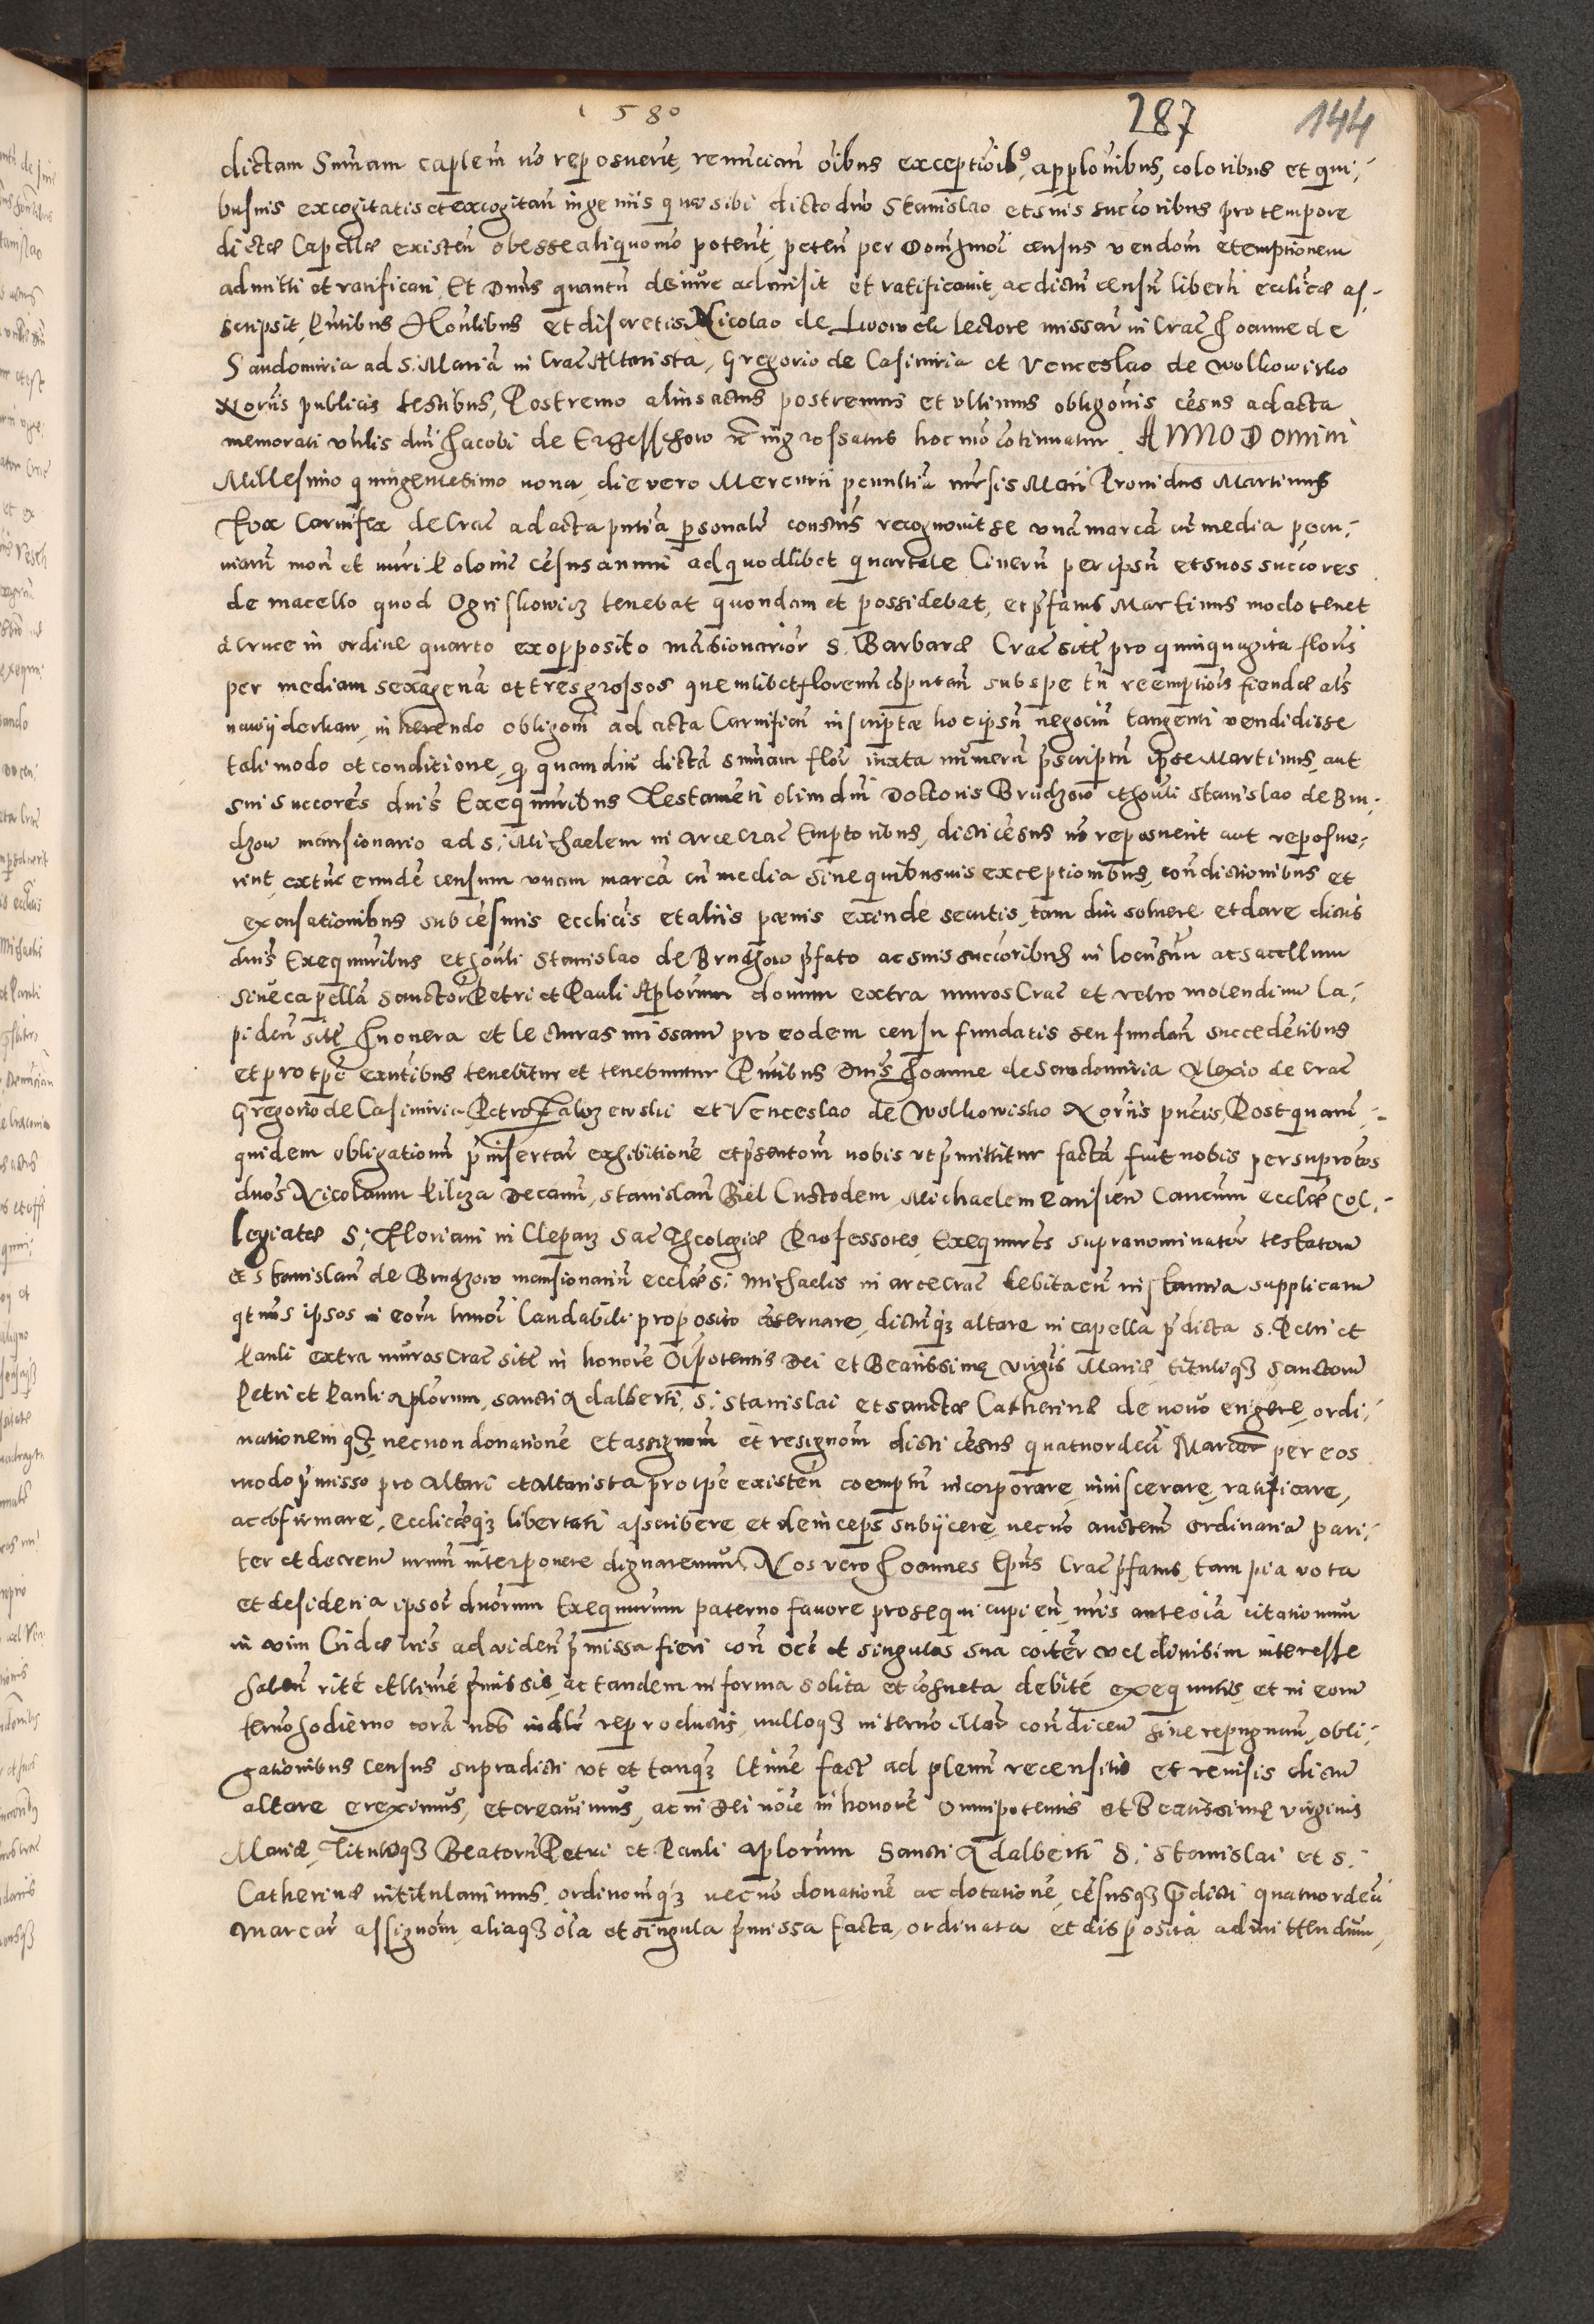 1580
287
144
dictam Sum̄am caplem̄ nō reposuerit, renuncian̄ oībus exceptioībꝰ, applōnibus, coloribus et qui-
busuis excogitatis et excogitan̄ ingeniis quæ sibi dicto dn̄o Stanislao et suis succōribus pro tempore
dictæ Capellæ existen̄ obesse aliquomo poterit, peten̄ per Dom̄ hmōi census vendom̄ et emptionem
admitti et ratificari, Et Dn̄us quantū de iure admisit et ratificauit, ac dictū censū liberti ecclicæ as-
scripsit, Pn̄tibus Honlibus et discretis Nicolao de Lwow lectore missar̄ in Crac̄ Joanne de
Sandomiria ad S. Mariā in Crac̄ Altarista, Gregorio de Casimiria et Venceslao de Wolkowisko
Nor̄iis publicis testibus, Postremo alius actus postremus et vltimus obligōnis cēsus ad acta
memorati vtilis dn̄i Jacobi de ingrossatus hoc mō cōtinuatur. ANNO Domini
Millesimo quingentesimo nona, die vero Mercurii penultiā mēsis Maii Prouidus Martinus
Carnifex de Crac̄ ad acta pn̄tia p̄sonalr̄ constitūs recognouit se vnā marcā cū media pecu-
niarū mon̄ et nūri Polonic̄ cēsus annui ad quodlibet quartale Ciner̄ū per ipsū et suos succōres
de macello quod Ogriskowicz tenebat quondam et possidebat, et p̄fatus Martinus modo tenet
à cruce in ordine quarto ex opposito māsionarior̄ S. Barbaræ Crac̄ sitē pro quinquagīta floris
per mediam sexagenā et tres grossos quemlibet florenū cōputan̄ sub spe tn̄ reemptiois fiendæ als̄
nawyderkaw, inherendo obligom̄ ad acta Carnificū inscriptæ hoc ipsū negociū tangenti vendidisse
tali modo et conditione, q quamdiu dictā sum̄am flor̄ iuxta numerū p̄scriptū ipse Martinus, aut
sui succōres dn̄is Exequutoribus Testamēti olim dn̄i Doctoris Brudzow et honli Stanislao de Bru-
dzow mansionario ad S. Michaelem in arce Crac̄ Emptoribus, dicti cēsus nō reposuerit aut reposue-
rint, extūc eundē censum vnam marcā cū media sine quibusuis exceptionibus, con̄dictionibus et
excusationibus sub cēsuris ecclicis et aliis pænis exinde secutis, tam diu soluere et dare dictis
dn̄is Exequutoribus et honli Stanislao de Brudzow p̄fato ac suis succōribus in locū suū ac sacellum
siue capellā sanctor̄ Petri et Pauli Aplorum domum extra muros Crac̄ et retro molendinū la-
pideū sitē In onera et lecturas missarū pro eodem censu fundatis seu fundan̄ succedētibus
et pro tp̄e exn̄tibus tenebitur et tenebuntur Pn̄tibus Dn̄is Joanne de Sandomiria Alexio de Crac̄
Gregorio de Casimiria, Petro et Venceslao de Wolkowisko Nor̄iis puclis, Postquam,
quidem obligationū p̄insertar̄ exhibitionē et p̄sentom̄ nobis vt p̄mittitur factā, fuit nobis per suprōtos
dn̄os Nicolaum Pilcza Decanū, Stanislaū Biel Custodem, Michaelem Parisien̄ Canc̄um ecclæ Col-
legiatæ S. Floriani in Cleparz Sac̄ Theologiæ Professores, Exequutores supranominator̄ testatorū
et Stanislaū de Brudzow mansionariū ecclæ S. Michaelis in arce Crac̄ debita cū instantia supplicatū
qtnus ipsos in eorū hmōi laudabili proposito cōseruare, dictūqȝ altare in capella p̄dicta S. Petri et
Pauli extra muros Crac̄ sitē in honorē Oīpotentis Dei et Beatissimæ virgīs Mariæ tituliqȝ sanctorū
Petri et Pauli Aplorum, sancti Adalberti, S. Stanislai et sanctæ Catherinæ de nouo erigere, ordi-
nationemqȝ, necnon donationē et assignom̄ et resignom̄ dicti cēsus quatuordeci Marcar̄ per eos
modo p̄misso pro altari et altarista pro tp̄e existen̄ coemptū incorporare, iniuscerare, ratificare,
ac cōfirmare, ecclicæqȝ libertati asscribere et deinceps subijcere, necnō auctem̄ ordinariā pari-
ter et decretū nr̄um interponere dignaremur. Nos vero Joannes Ep̄us Crac̄ p̄fatus, tam pia vota
et desideria ipsor̄ dn̄orum Exequutorum paterno fauore prosequi cupien̄, nr̄is ante oīa citationum
in vim Cridæ lr̄is ad viden̄ p̄missa fieri con̄ oēs et singulos sua cōiter vel diuisim interesse
haben̄ ritè et ltimè p̄missis, ac tandem in forma solita et cōsueta debitè exequutis, et in eorū
termō hodierno corā nōb iudlr̄ reproductis, nulloqȝ in termō illo con̄dicen̄ siue repugnan̄, obli-
gationibus census supradicti vt et tanqȝ ltime fact̄ ad plenū recensitis et reuisis dictū
altare ereximus, et creauimus, ac in Dei nōie in honorē omnipotentis et Beatissimæ virginis
Mariæ, Tituloqȝ Beatorū Petri et Pauli Aplorum Sancti Adalberti S. Stanislai et S.
Catherinæ intitulauimus, ordinom̄qȝ necnō donationē ac dotationē, cēsusqȝ p̄dicti quatuordeci
Marcar̄ assignom̄, aliaqȝ oīa et singula p̄missa facta, ordinata et disposita admittendum,